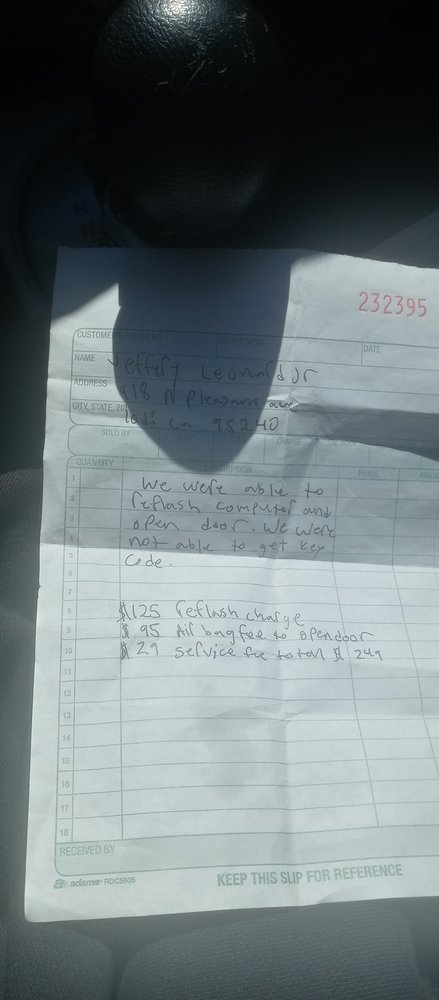 232395
CUSTOMER ORDER NO. DEPARTMENT DATE
NAME Jeffery Leonard Jr
ADDRESS 818 N Pleasant ave
CITY, STATE, ZIP lodi Ca 95240
SOLD BY CHARGE
QUANTITY DESCRIPTION PRICE AMO
1 We were able to
2 reflash computer and
3 open door. We were
4 not able to get key
5 Code.
6
7
8 $125 reflash charge
9 $95 Air bag fee to open door
10 $29 Service fee total $249
11
12
13
14
15
16
17
18
RECEIVED BY
adams RDC5805
KEEP THIS SLIP FOR REFERENCE